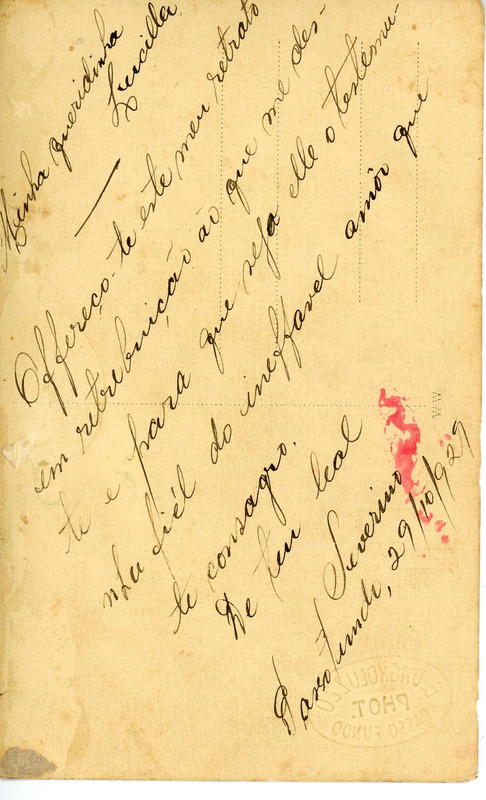 Minha queridinha
Lucilla
Offereço-te este meu retrato
em retrebuição ão que me des-
te e para que seja elle o testemu-
nhu fiél do ineffavel amôr que
te consagro.
De teu leal
Severino
Passofundo, 29/10/929
PHOT.
PASSO FUNDO